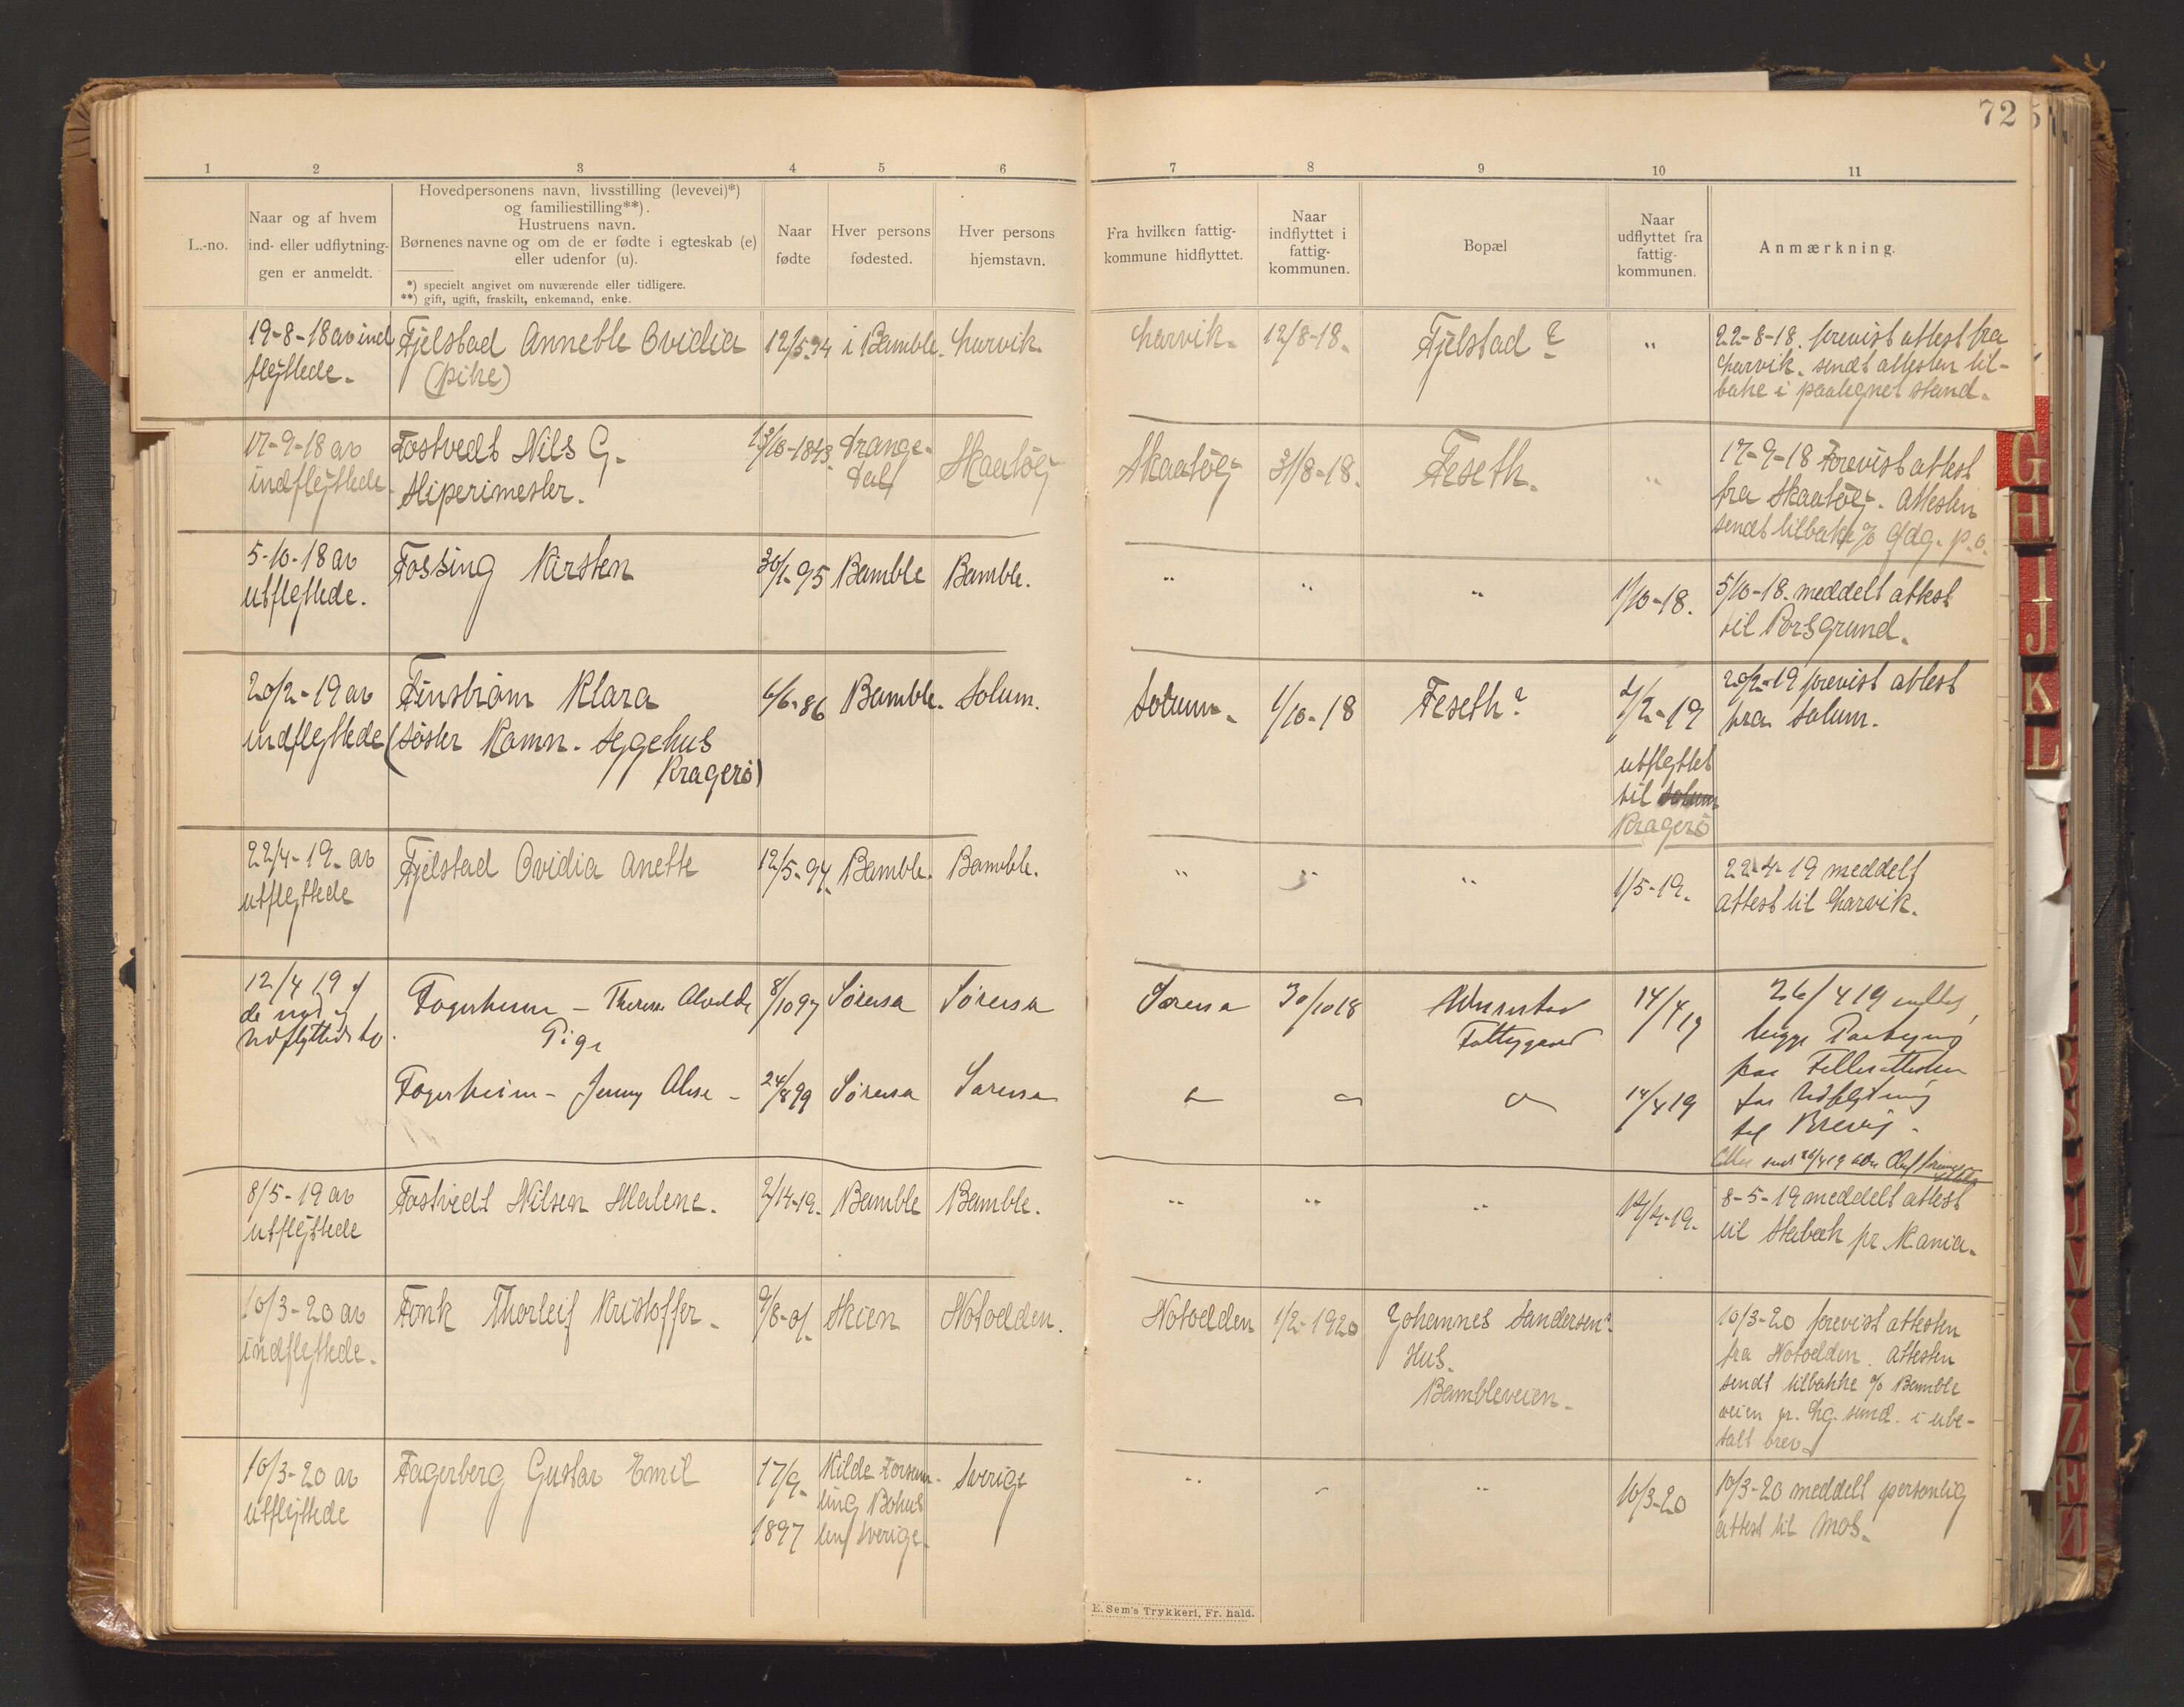 72
1 2 3 4 5 6 7 8 9 10 11
L.-no.
Naar og af hvem
ind- eller udflytnin-
gen er anmeldt.
Hovedpersonens navn, livsstilling (levevei)*)
og familiestilling**).
Hustruens navn.
Børnenes navne og om de er fødte i egteskab (e)
eller udenfor (u).
*) specielt angivet om nuværende eller tidligere.
**) gift, ugift, fraskilt, enkemand, enke.
Naar
fødte
Hver persons
fødested.
Hver persons
hjemstavn.
Fra hvilken fattig-
kommune hidflyttet.
Naar
indflyttet i
fattig-
kommunen.
Bopæl
Naar
udflyttet fra
fattig-
kommunen.
Anmærkning.
19-8-18 av ind
flyttede.
Fjelstad Annette Ovidia
(pike)
12/5-94
i Bamble.
Larvik.
Larvik.
12/8-18.
Fjelstad?
"
22-8-18. forevist attest fra
Larvik. sendt attesten til-
bake i paategnet stand.
17-9-18 av
indflyttede.
Tostvedt Nils G.
Sliperimester.
13/10-1843.
Drange-
dal
Skaatöy
Skaatöy
31/8-18.
Feseth.
"
17-9-18 Forevist attest
fra Skaatöy. Attesten
sendt tilbake % Gdg. p.o.
5-10-18 av
utflyttede.
Fossing Kirsten
30/1-95
Bamble
Bamble.
"
"
"
1/10-18.
5/10-18. meddelt attest
til Porsgrund.
20/2-19 av
indflyttede
Finström Klara
(söster Komn. sygehus
Kragerö)
6/6-86
Bamble.
Solum.
Solum.
1/10-18
Feseth?
2/2-19
utflyttet
til Solum
Kragerö
20/2-19 forevist attest
fra Solum.
22/4-19. av
utflyttede
Fjelstad Ovidia Anette
12/5-94.
Bamble.
Bamble.
"
"
1/5-19.
22-4-19 meddelt
attest til Larvik.
12/4 19 af
de
Fagerheim - Therese
Pige
8/10 97
8/10 97
Fagerheim - Jenny
24/8 99
30/10 18
14/4 19
14/4 19
26/4 19
for Udflytning
til Brevig.
8/5-19 av
utflyttede
Tostvedt Nilsen Malene.
2/14-19.
Bamble
Bamble.
"
"
"
14/4-19.
8-5-19 meddelt attest
til Stabæk pr. Kania.
10/3-20 av
indflyttede.
Fonk Thorleif Kristoffer.
9/8-01.
Skien
Notodden.
Notodden
1/2-1920
Johannes Sandersen?
Hus.
Bambleveien.
10/3-20 forevist attesten
fra Notodden. Attesten
sendt tilbakke % Bamble
veien pr. Lg.sund. i ube-
talt brev.
10/3-20 av
utflyttede
Fagerberg Gustav Emil
17/9-
1897
Kilde Forsam-
ling Bohus
len Sverige.
Sverige
"
"
10/3-20
10/3-20 meddelt personlig
attest til Mos.
E. Sem's Trykkeri, Fr. hald.
G
H
I
J
K
L